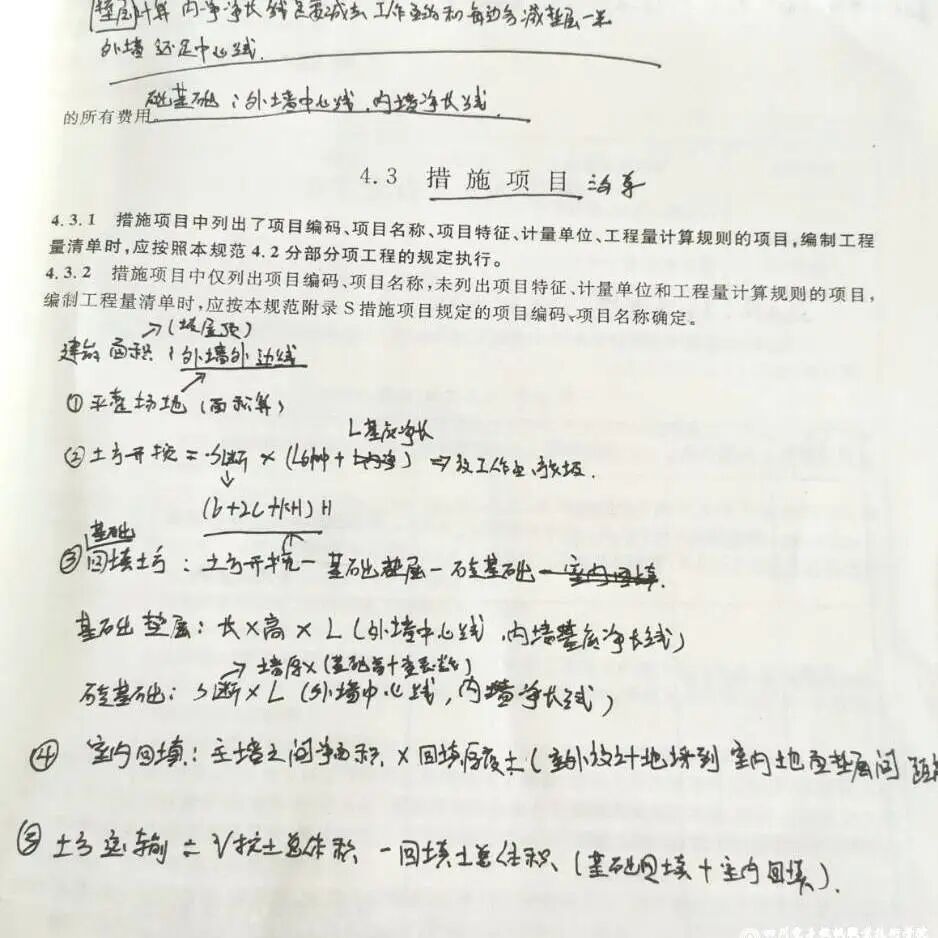 垫层计算 内墙净长线是要减去工作面的和每边多减垫层一半
外墙还是中心线.
砖基础:外墙中心线.内墙净长线
的所有费用。
4.3 措施项目
4.3.1 措施项目中列出了项目编码、项目名称、项目特征、计量单位、工程量计算规则的项目,编制工程
量清单时,应按照本规范4.2分部分项工程的规定执行。
4.3.2 措施项目中仅列出项目编码、项目名称,未列出项目特征、计量单位和工程量计算规则的项目,
编制工程量清单时,应按本规范附录S措施项目规定的项目编码、项目名称确定。
→(坡屋顶)
建筑面积 外墙外边线
①平整场地(面积算)
L基底净长
②土方开挖=S断×(L外中+L内净)⇒放工作面.放坡.
↓
(b+2C+KH)H
基础
③回填土方:土方开挖-基础垫层-砖基础-室内回填.
基础垫层:长×高×L(外墙中心线,内墙基底净长线)
→墙厚×(基础高+查表数)
砖基础:S断×L(外墙中心线,内墙净长线)
④ 室内回填:主墙之间净面积×回填厚度土(室外设计地坪到室内地面垫层间距
⑤土方运输=V挖土总体积-回填土总体积(基础回填+室内回填).